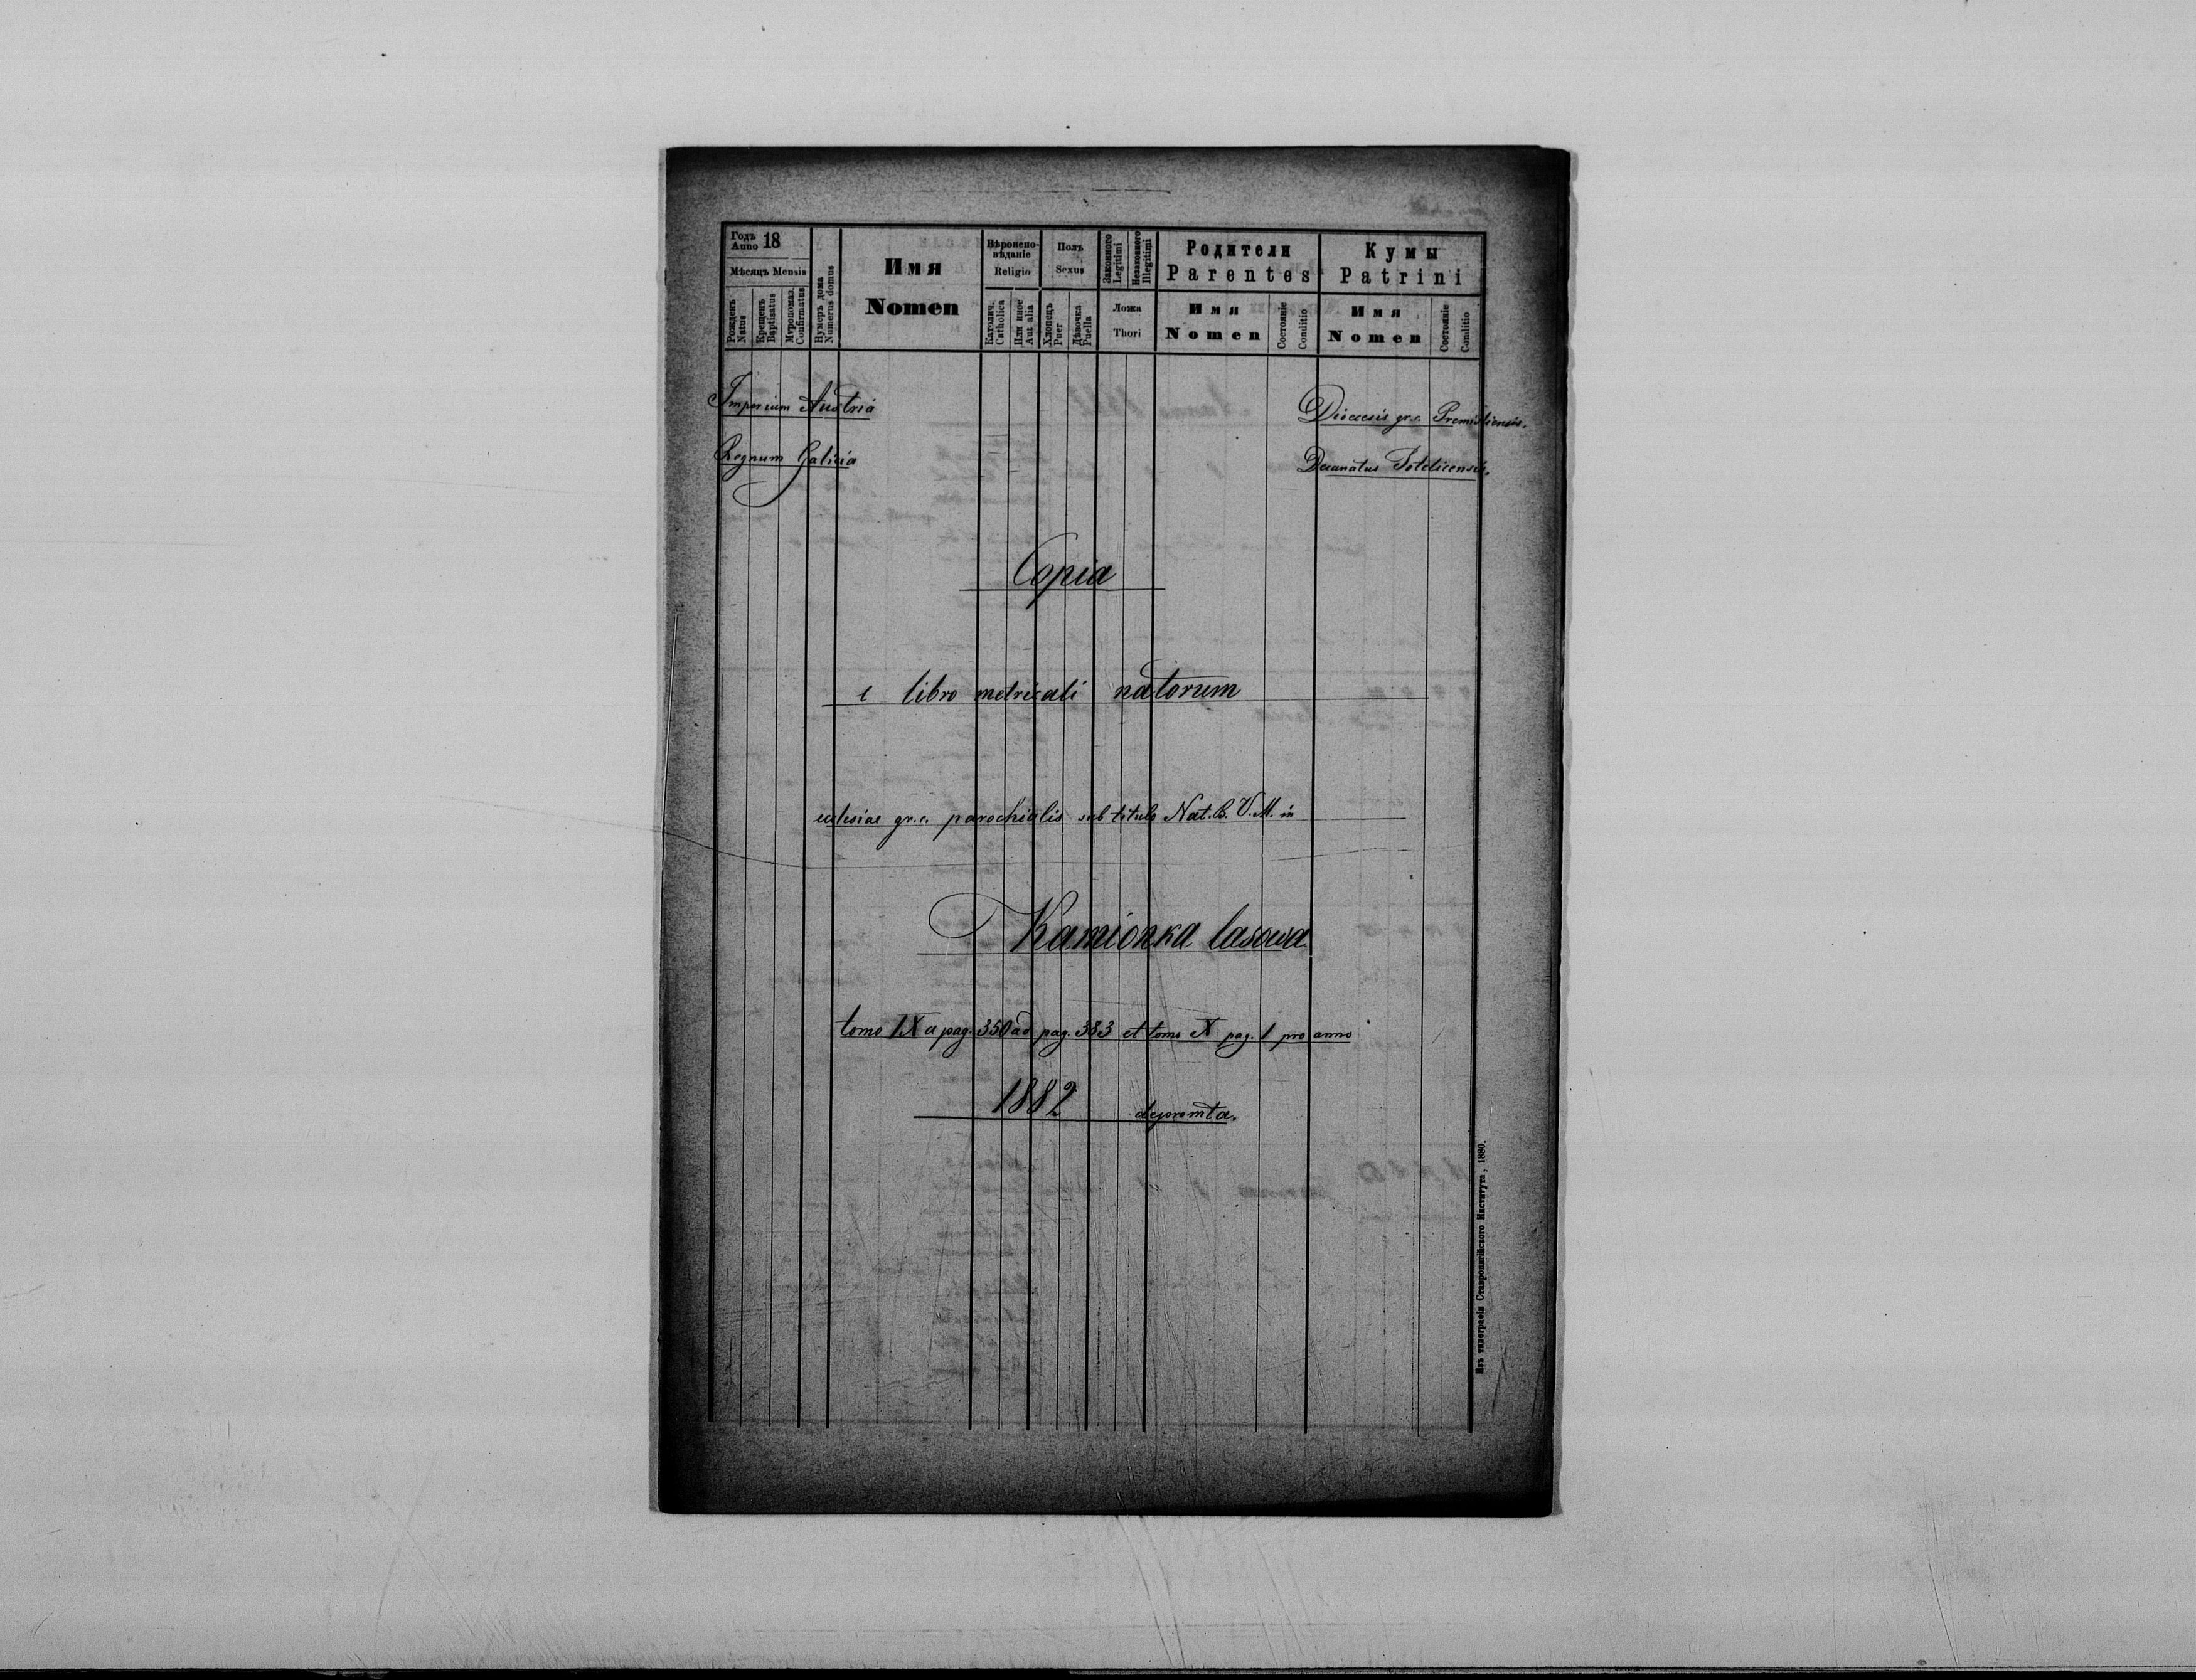 Годъ
Anno 18
Мѣсяцъ Mensis
Рожденъ
Natus
Крещенъ
Baptisatus
Мѵропомаз.
Confirmatus
Нумеръ дома
Numerus domus
Имя
Nomen
Вѣроиспо-
вѣданіе
Religio
Католич.
Catholica
Или иное
Aut alia
Полъ
Sexus
Хлопецъ
Puer
Дѣвочка
Puella
Законного
Legitimi
Незаконного
Illegitimi
Ложа
Thori
Родители
Parentes
Имя
Nomen
Состояніе
Conditio
Кумы
Patrini
Имя
Nomen
Состояніе
Conditio
Imperium Austria
Diocesis gr.c. Premisliensis.
Regnum Galicia
Decanatus Potelicensis.
Copia
e libro metricali natorum
ecclesiae gr.c. parochialis sub titulo Nat. B. V. M. in
Kamionka lasowa
tomo IX a pag. 350 ad pag. 383 et tomo X pag. 1 pro anno
1882 depromta.
Изъ типографіи Ставропигійского Института, 1880.